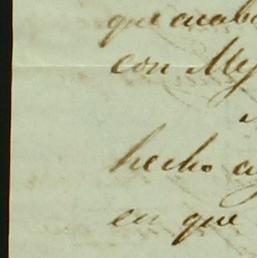 que acab
con My
hecho a
en que